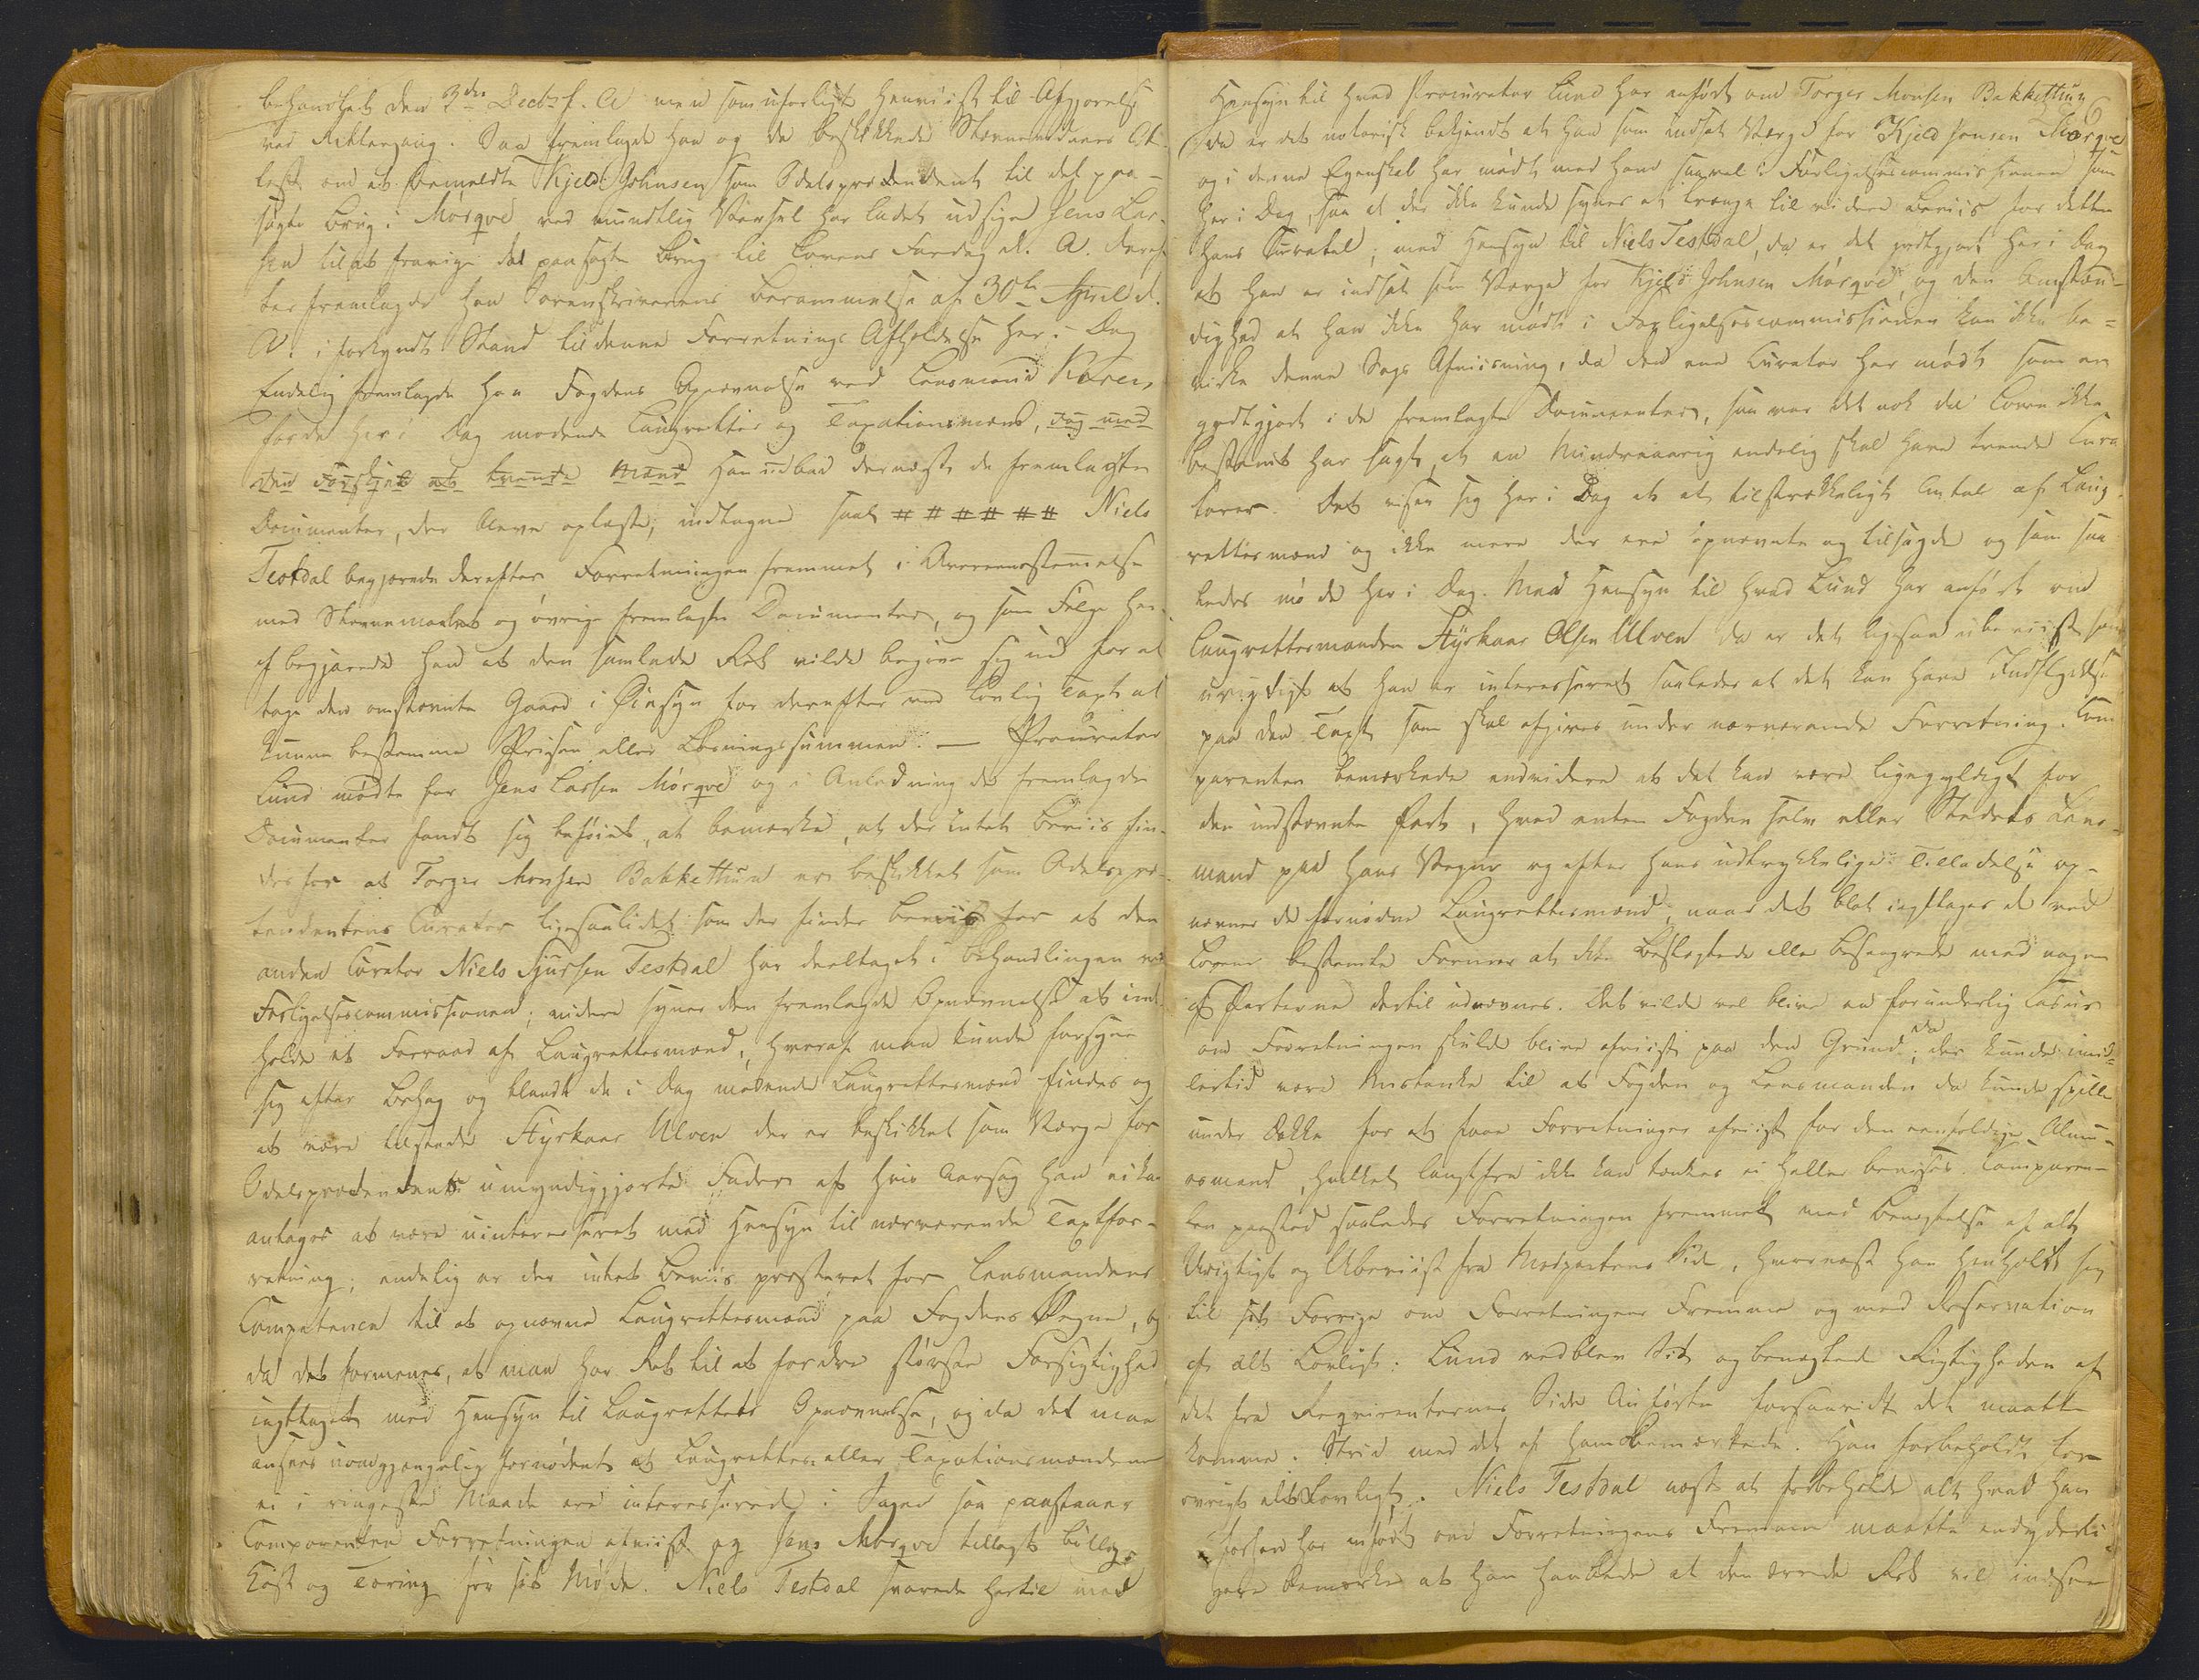 behandlet den 3die Decbr f. A men som uforligt henviist til Afgjørelse
ved Rettergang. Saa fremlagde han og de beskikkede Stevnemænds At-
test om at bemeldte Kjeld Johnsen som Odelsprætendent til det paa-
søgte Brug i Mørqve ved mundtlig Varsel har ladet udsige Jens Lar-
sen til at fravige det paasøgte Brug til Lovens Faredag d. A. deref-
ter fremlagde han Sorenskriverens Berammelse af 30te April d.
A. i forkyndt Stand til denne Forretnings Afholdelse her i Dag
Endelig fremlagde han Fogdens Opnævnelse ved Lensmand
for de her i Dag mødende Laugrettes og Taxationsmænd, dog med
den Forskjel at tvende Mænd Han indbad dernæst de fremlagte
Documenter, der bleve oplæste, indtagne saal # # # # # # Niels
Testdal begjærede derefter Forretningen fremmet i Overeensstemmelse
med Stevnemaalet og øvrige fremlagte Documenter, og som Følge her-
af begjærede han at den samlede Ret vilde begive sig ud for at
tage den omstevnte Gaard i Øiesyn for derefter ved lovlig Taxt at
kunne bestemme Prisen eller Løsningssummen. — Procurator
Lund mødte for Jens Larsen Mørqve og i Anledning de fremlagde
Documenter fandt sig beføiet, at bemærke, at der intet Beviis fin-
des for at Torger Monsen Bakkethun er beskikket som Odelspræ-
tendentens Curator ligesaalidet som der findes Beviis for at den
anden Curator Niels Sjursen Testdal har deeltaget i Behandlingen ved
Forligelsescommissionen; videre synes den fremlagde Opnævnelse at inde-
holde et Forraad af Laugrettesmænd, hvoraf man kunde forsyne
sig efter Behag og blandt de i Dag mødende Laugrettesmænd findes og
at være tilstæde Styrkaar Ulven der er beskikket som Værge for
Odelsprætendents umyndiggjorte Fader af hvis Aarsag han ei kan
antages at være uinteresseret med Hensyn til nærværende Taxtfor-
retning; endelig er der intet Beviis præsteret for Lensmandens
Competence til at opnævne Laugrettesmænd paa Fogdens Vegne, og
da det formenes, at man har Ret til at fordre største Forsigtighed
iagttaget med Hensyn til Laugrettets Opnævnelse, og da det maa
ansees uomgjængelig fornødent at Laugrettes eller Taxationsmændene
ei i ringeste Maade ere interesserede i Sagen saa paastaaer
Comparenten Forretningen afviist og Jens Mørqve tillagt billig
Kost og Tæring for sit Møde. Niels Testdal svarede hertil med
6
Hensyn til hvad Procurator Lund har anført om Torger Monsen Bakkethun
da er det notorisk bekjendt at han som indsat Værge for Kjeld Jonsen Mørqve
og i denne Egenskab har mødt med ham saavel i Forligelsescommissionen som
her i Dag, saa at der ikke kunde synes at trænge til videre Beviis for dette
hans Curatel; med Hensyn til Niels Testdal, da er det godtgjort her i Dag
at han er indsat som Værge for Kjeld Johnsen Mørqve, og den Omstæn-
dighed at han ikke har mødt i Forligelsescommissionen kan ikke be-
virke denne Sags Afviisning, da den ene Curator har mødt som er
godtgjort i de fremlagte Documenter, saa var det nok da Loven ikke
bestemt har sagt at en Mindreaarig endelig skal have tvende Cura
torer. Det viser sig her i Dag at et tilstrækkeligt Antal af Laug-
rettesmænd og ikke mere der ere opnævnte og tilsagde og som saa
ledes møde her i Dag. Med Hensyn til hvad Lund har anført om
Laugrettesmanden Styrkaar Olsen Ulven da er det ligesaa ubeviist som
urigtigt at han er interesseret saaledes at det kan have Indflydelse
paa den Taxt som skal afgives under nærværende Forretning. Com
parenten bemærkede endvidere at det kan være ligegyldigt for
den indstevnte Part, hvad enten Fogden selv eller Stedets Lens-
mand paa hans Vegne og efter hans udtrykkelige Tilladelse op-
nævner de fornødne Laugrettesmænd, naar det blot iagttages at ved
Lovens bestemte Former at ikke Beslægtede eller Besvogrede med nogen
af Parterne dertil udnævnes. Det vilde vel blive en forunderlig Casus
om Forretningen skulde blive afviist paa den Grund, da der kunde imid-
lertid være Mistanke til at Fogden og Lensmanden da kunde spille
under Dække for at faae Forretninger afviist for den eenfoldige Almu-
esmand, hvilket langtfra ikke kan tænkes ei heller bevises. Comparen-
ten paastod saaledes Forretningen fremmet med Benægtelse af alt
Urigtigt og Ubeviist fra Modpartens Side, hvornæst han henholdt sig
til sit Forrige om Forretningens Fremme og med Reservation
af alt Lovligt. Lund vedblev Sit og benægtede Rigtigheden af
det fra Reqvirenternes Side Anførte forsaavidt det maatte
komme i Strid med det af ham Bemærkede. Han forbeholdt for
øvrigt alt Lovligt. Niels Testdal næst at forbeholde alt hvad han
forhen har anført om Forretningens Fremme maatte endyderli-
gere bemærke at han haabede at den ærede Ret vil indsee